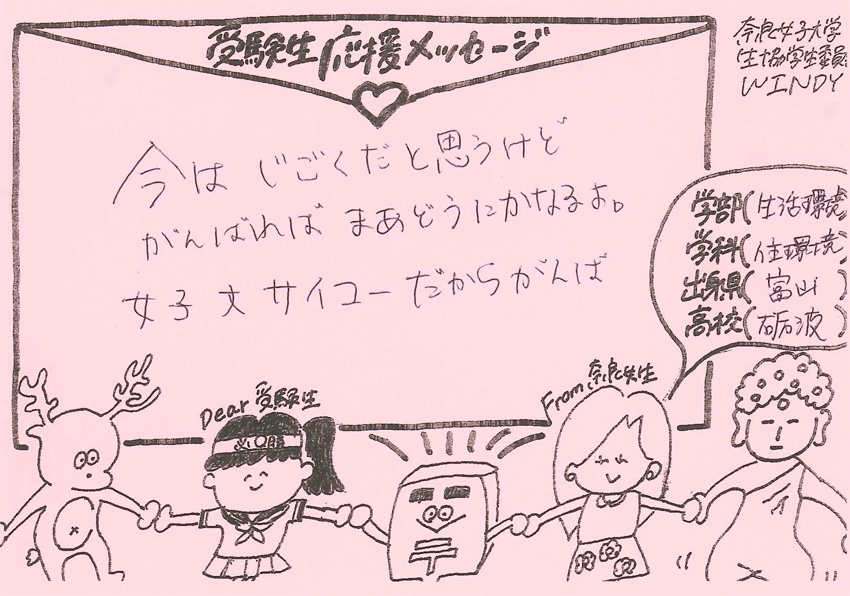 受験生応援メッセージ
奈良女子大学
生協学生委員
WINDY
今は じごくだと思うけど
がんばれば まあどうにかなるよ。
女子大 サイコーだからがんば
学部(生活環境)
学科(住環境)
出身県(富山)
高校(砺波)
Dear 受験生
From 奈良女生
必〇勝
〒